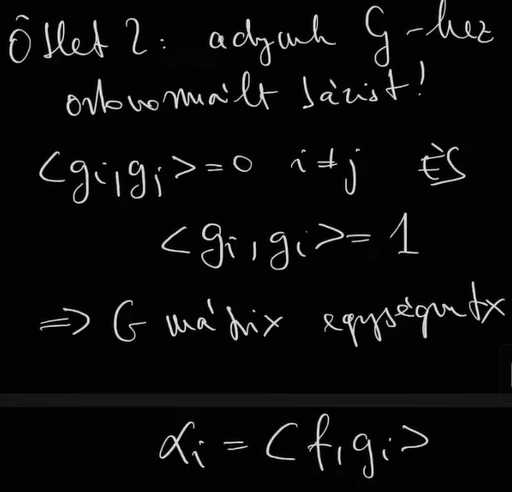 Ötlet 2: adjunk G-hez
ortonormált bázist!
<gi,gj>=0 i≠j ÉS
<gi,gi>=1
=> G mátrix egységmtx
αi=<f,gi>